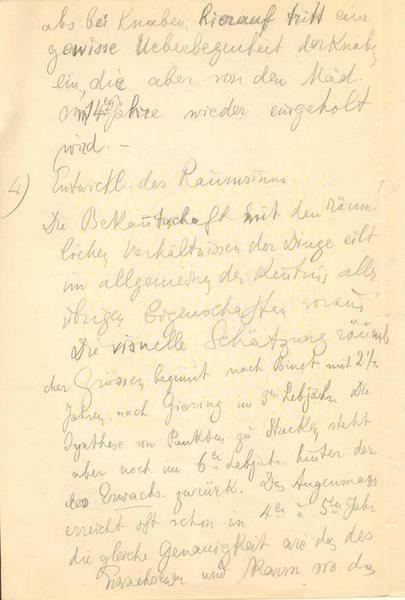 als bei Knaben. Hierauf tritt eine
gewisse Ueberlegenheit der Knaben
ein, die aber von den Mäd.
14 Jahre wieder eingeholt
wird. –
4) Entwickl. des Raumsinns.
Die Bekantschaft mit den räum-
lichen Verhältnissen der Dinge eilt
im allgemeinen der Kentnis aller
übrigen Eigenschaften voraus
Die visuelle Schätzung räuml.
cher Grössen beginnt nach Binet mit 2½
Jahren, nach Giering im 3ten Lebjahr. Die
Synthese von Punkten zu Strecken steht
aber noch im 6ten Lebjahr. hinter der
des Erwachs. zurück. Das Augenmass
erreicht oft schon im 4ten u. 5ten Jahr
die gleiche Genauigkeit wie das des
Erwachsenen und kaum wo das